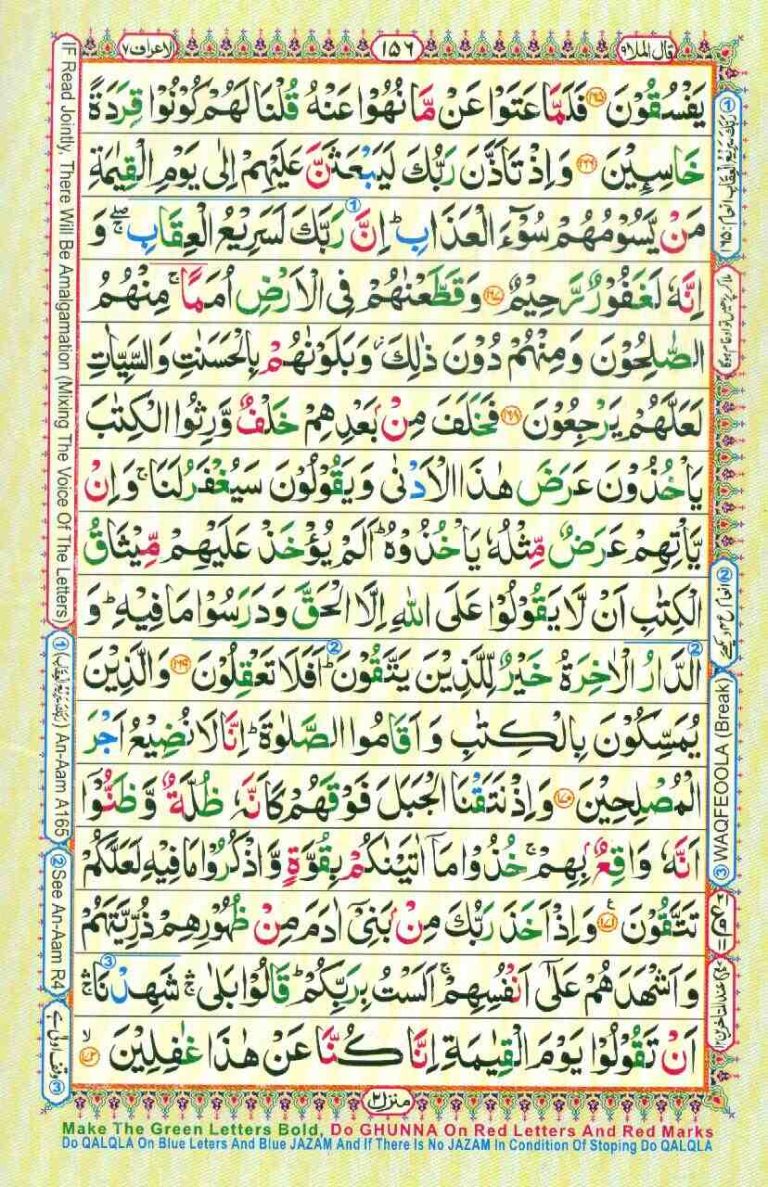 قال الملا ٩
١٥٦
الاعراف ٧
يَفْسُقُوْنَ ﴿۱۶۵﴾ فَلَمَّا عَتَوْا عَنْ مَّا نُهُوْا عَنْهُ قُلْنَا لَهُمْ كُوْنُوْا قِرَدَةً
خَاسِـِٕيْنَ ﴿۱۶۶﴾ وَاِذْ تَاَذَّنَ رَبُّكَ لَيَبْعَثَنَّ عَلَيْهِمْ اِلٰى يَوْمِ الْقِيٰمَةِ
مَنْ يَّسُوْمُهُمْ سُوْٓءَ الْعَذَابِ ؕ اِنَّ رَبَّكَ لَسَرِيْعُ الْعِقَابِ ۖۚ وَ
اِنَّهٗ لَغَفُوْرٌ رَّحِيْمٌ ﴿۱۶۷﴾ وَقَطَّعْنٰهُمْ فِى الْاَرْضِ اُمَمًا ۚ مِنْهُمُ
الصّٰلِحُوْنَ وَمِنْهُمْ دُوْنَ ذٰلِكَ ۫ وَبَلَوْنٰهُمْ بِالْحَسَنٰتِ وَالسَّيِّاٰتِ
لَعَلَّهُمْ يَرْجِعُوْنَ ﴿۱۶۸﴾ فَخَلَفَ مِنْۢ بَعْدِهِمْ خَلْفٌ وَّرِثُوا الْكِتٰبَ
يَاْخُذُوْنَ عَرَضَ هٰذَا الْاَدْنٰى وَيَقُوْلُوْنَ سَيُغْفَرُ لَنَا ۚ وَاِنْ
يَّاْتِهِمْ عَرَضٌ مِّثْلُهٗ يَاْخُذُوْهُ ؕ اَلَمْ يُؤْخَذْ عَلَيْهِمْ مِّيْثَاقُ
الْكِتٰبِ اَنْ لَّا يَقُوْلُوْا عَلَى اللّٰهِ اِلَّا الْحَقَّ وَدَرَسُوْا مَا فِيْهِ ؕ وَ
الدَّارُ الْاٰخِرَةُ خَيْرٌ لِّلَّذِيْنَ يَتَّقُوْنَ ؕ اَفَلَا تَعْقِلُوْنَ ﴿۱۶۹﴾ وَالَّذِيْنَ
يُمَسِّكُوْنَ بِالْكِتٰبِ وَاَقَامُوا الصَّلٰوةَ ؕ اِنَّا لَا نُضِيْعُ اَجْرَ
الْمُصْلِحِيْنَ ﴿۱۷۰﴾ وَاِذْ نَتَقْنَا الْجَبَلَ فَوْقَهُمْ كَاَنَّهٗ ظُلَّةٌ وَّظَنُّوْۤا
اَنَّهٗ وَاقِعٌۢ بِهِمْ ۚ خُذُوْا مَاۤ اٰتَيْنٰكُمْ بِقُوَّةٍ وَّاذْكُرُوْا مَا فِيْهِ لَعَلَّكُمْ
تَتَّقُوْنَ ﴿۱۷۱﴾ وَاِذْ اَخَذَ رَبُّكَ مِنْۢ بَنِىْۤ اٰدَمَ مِنْ ظُهُوْرِهِمْ ذُرِّيَّتَهُمْ
وَاَشْهَدَهُمْ عَلٰٓى اَنْفُسِهِمْ ۚ اَلَسْتُ بِرَبِّكُمْ ؕ قَالُوْا بَلٰى ۛۚ شَهِدْنَا ۛۚ
اَنْ تَقُوْلُوْا يَوْمَ الْقِيٰمَةِ اِنَّا كُنَّا عَنْ هٰذَا غٰفِلِيْنَ ﴿۱۷۲﴾ ۙ
منزل ٢
① رَبَّكَ سَرِيْعُ الْعِقَابِ انعام: ١٦٥
ملا کر پڑھیں تو ادغام ہوگا
③ WAQFEOOLA (Break)
IF Read Jointly, There Will Be Amalgamation (Mixing The Voice Of The Letters)
① (رَبَّكَ سَرِيْعُ الْعِقَابِ) An-Aam A165
② See An-Aam R4
③ وقف اولیٰ ہے
Make The Green Letters Bold, Do GHUNNA On Red Letters And Red Marks
Do QALQLA On Blue Leters And Blue JAZAM And If There Is No JAZAM In Condition Of Stoping Do QALQLA